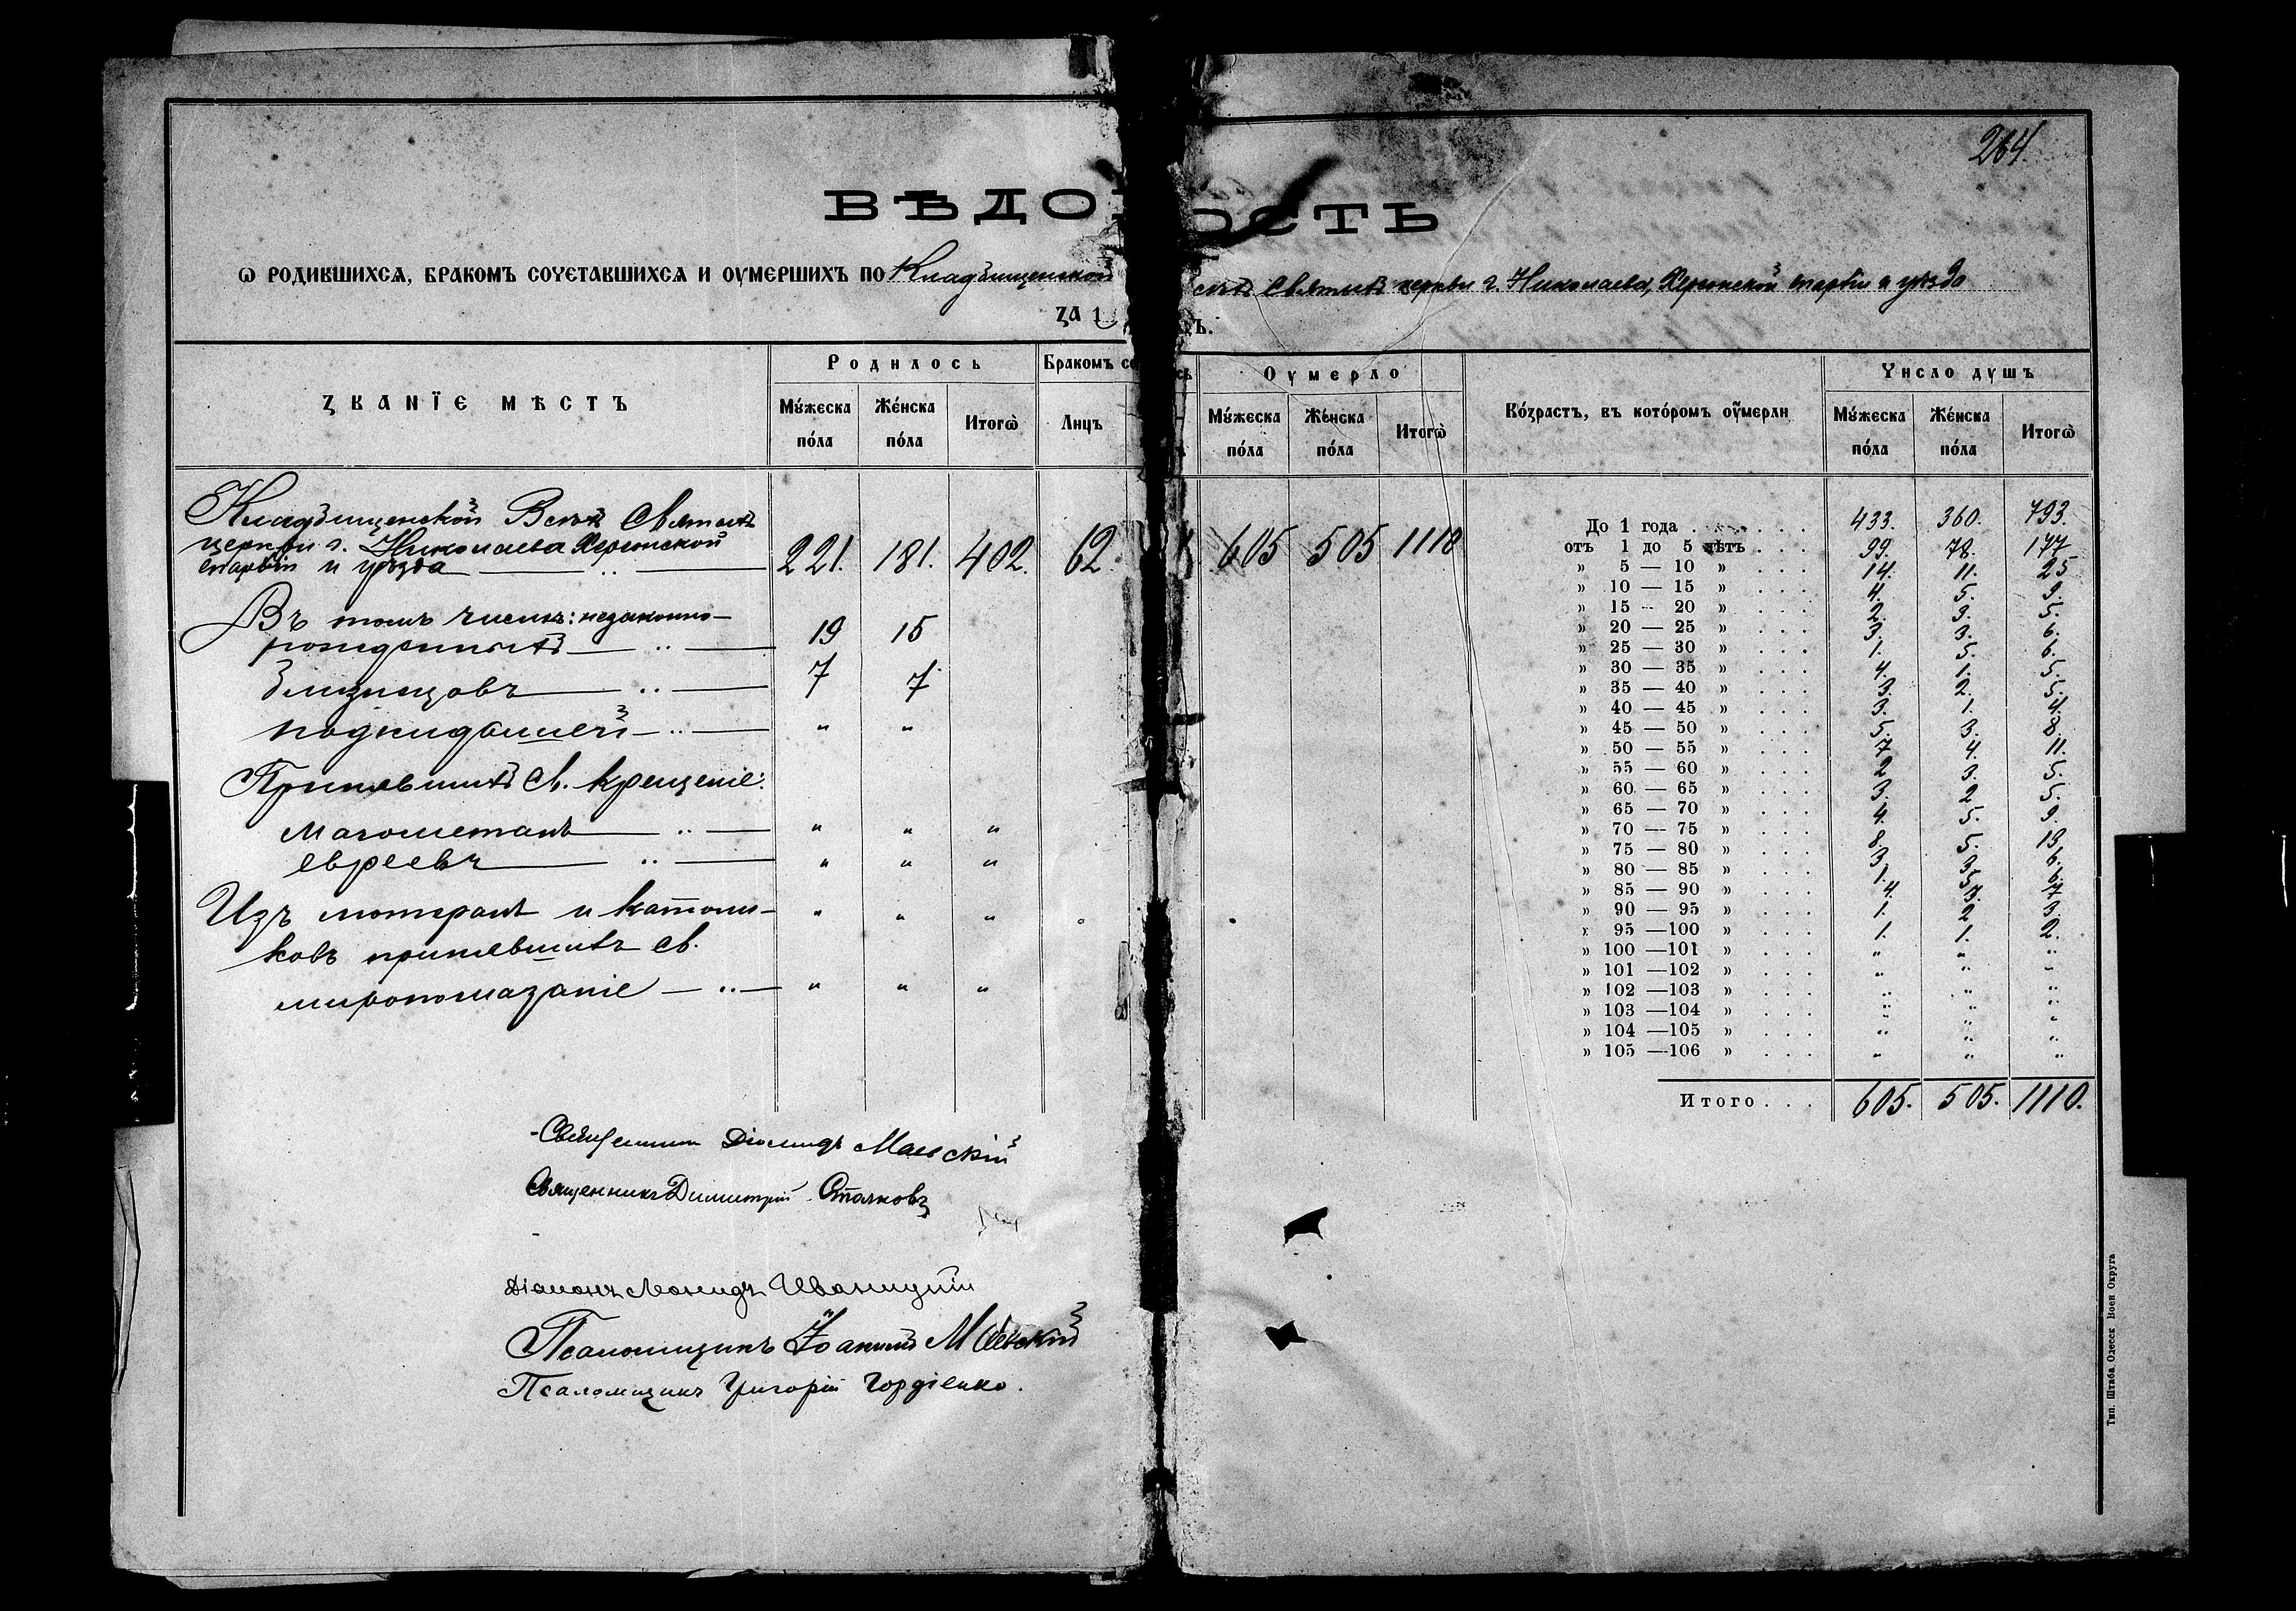 264.
ВѢДО ОСТЬ
Ѡ РОДИВШИХСЯ, БРАКОМЪ СОЧЕТАВШИХСЯ И ОУМЕРШИХЪ ПО Кладбищенской
Святыхъ церкви г. Николаева, Херсонской епархіи и уѣзда
ЗА 1
ЗВАНЇЕ МѢСТЪ
Родилось
Бракомъ со
Оумерло
Возрастъ, въ которомъ оумерли
Число душъ
Мужеска пола
Женска пола
Итогѡ
Лицъ
Мужеска пола
Женска пола
Итогѡ
Мужеска пола
Женска пола
Итогѡ
Кладбищенской Всѣхъ Святыхъ
церкви г. Николаева Херсонской
епархіи и уѣзда 221. 181. 402. 62. 605 505 1110
Въ томъ числѣ: незаконно-
рожденныхъ 19 15
близнецовъ 7 7
подкидышей " "
Принявшихъ Св. Крещеніе:
магометанъ " " "
евреевъ " " "
Изъ лютеранъ и католи- " " "
ковъ принявшихъ св.
миропомазаніе " " "
До 1 года . . . 433. 360. 793.
отъ 1 до 5 лѣтъ . . . 99. 78. 177
" 5 — 10 " . . . 14. 11. 25
" 10 — 15 " . . . 4. 5. 9.
" 15 — 20 " . . . 2. 3. 5.
" 20 — 25 " . . . 3. 3. 6.
" 25 — 30 " . . . 1. 5. 6.
" 30 — 35 " . . . 4. 1. 5.
" 35 — 40 " . . . 3. 2. 5.
" 40 — 45 " . . . 3. 1. 4.
" 45 — 50 " . . . 5. 3. 8.
" 50 — 55 " . . . 7 4. 11.
" 55 — 60 " . . . 2 3. 5.
" 60 — 65 " . . . 3. 2. 5.
" 65 — 70 " . . . 4. 5. 9.
" 70 — 75 " . . . 8. 5. 13.
" 75 — 80 " . . . 3. 3. 6.
" 80 — 85 " . . . 1. 5. 6.
" 85 — 90 " . . . 4. 3. 7.
" 90 — 95 " . . . 1. 2 3.
" 95 —100 " . . . 1. 1. 2.
" 100 —101 " . . . " " "
" 101 —102 " . . . " " "
" 102 —103 " . . . " " "
" 103 —104 " . . . " " "
" 104 —105 " . . . " " "
" 105 —106 " . . . " " "
Итого . . . 605. 505. 1110.
Священникъ Діомидъ Маевскій
Священникъ Димитрій Стачковъ
Діаконъ Леонидъ Иваницкій
Псаломщикъ Іоакимъ Маевскій
Псаломщикъ Григорій Гордіенко.
Тип. Штаба Одесск Воен Округа